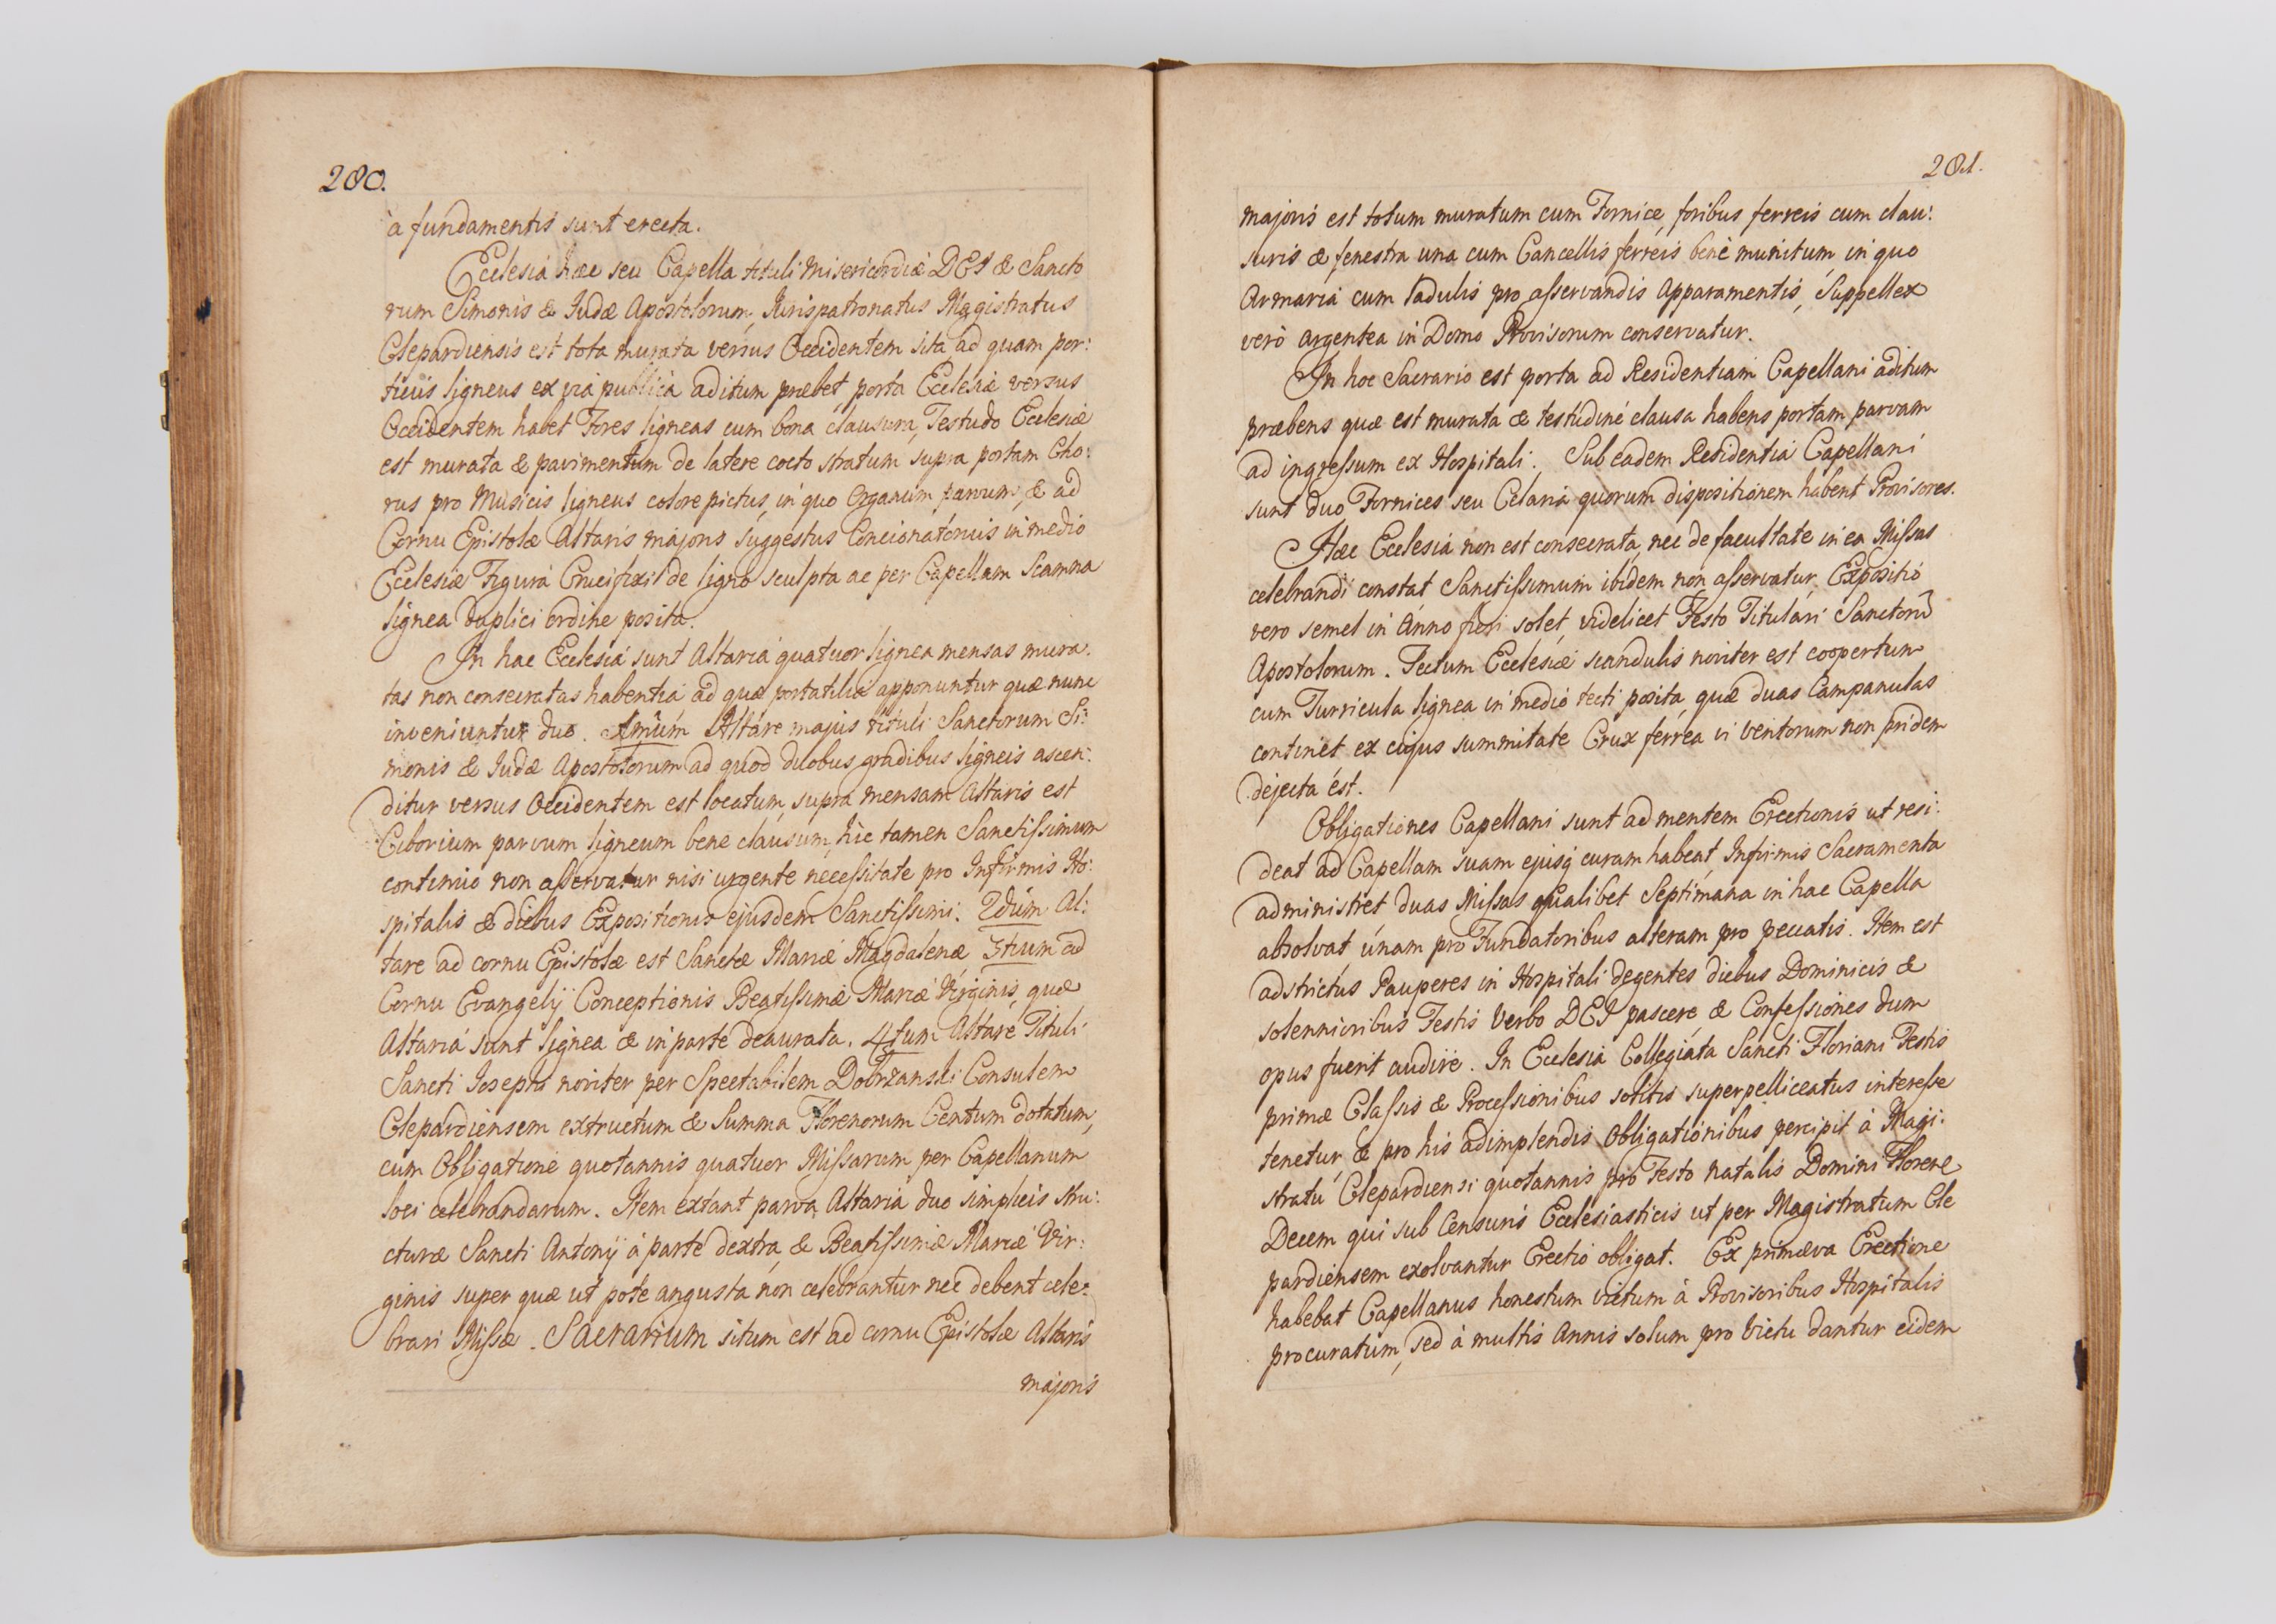 280.
à fundamentis sunt erecta.
Ecclesia hæc seu Capella tituli Misericordiæ DEI & Sancto
rum Simonis & Iudæ Apostolorum, Iurispatronatus Magistratus
Clepardiensis est tota murata versus Occidentem sita, ad quam por:
ticus ligneus ex via publica aditum præbet, porta Ecclesiæ versus
Occidentem habet Fores ligneas cum bona clausura, Testudo Ecclesiæ
est murata & pavimentum de latere cocto stratum supra portam Cho:
rus pro Musicis ligneus colore pictus, in quo Organum parvum, & ad
Cornu Epistolæ Altaris majoris Suggestus Concionatorius in medio
Ecclesiæ Figura Crucifixi de ligno sculpta ac per Capellam Scamna
lignea duplici ordine posita.
In hac Ecclesia sunt Altaria quatuor lignea mensas mura:
tas non consecratas habentia, ad quæ portatilia apponuntur quæ nunc
inveniuntur duo. Altare majus tituli Sanctorum Si:
monis & Iudæ Apostolorum ad quod duobus gradibus ligneis ascen:
ditur versus Occidentem est locatum, supra mensam Altaris est
Ciborium parvum ligneum bene clausum, hic tamen Sanctissimum
continuo non asservatur nisi urgente necessitate pro Infirmis Ho:
spitalis & diebus Expositionis ejusdem Sanctissimi. 2dum Al:
tare ad cornu Epistolæ est Sanctæ Mariæ Magdalenæ 3tium ad
Cornu Evangelij Conceptionis Beatissimæ Mariæ Virginis, quæ
Altaria sunt lignea & in parte deaurata. 4tum Altare Tituli
Sancti Iosephi noviter per Spectabilem Dobrzanski Consulem
Clepardiensem extructum & Summa Florenorum Centum dotatum,
cum Obligatione quotannis quatuor Missarum per Capellanum
loci celebrandarum. Item extant parva Altaria duo simplicis stru:
cturæ Sancti Antonij à parte dextra, & Beatissimæ Mariæ Vir:
ginis super quæ ut pote angusta non celebrantur nec debent cele:
brari Missæ. Sacrarium situm est ad cornu Epistolæ Altaris
majoris
281.
majoris est totum muratum cum Fornice, foribus ferreis cum clau:
suris & fenestra una cum Cancellis ferreis benè munitum, in quo
Armaria cum ladulis pro asservandis Apparamentis, Suppellex
verò argentea in Domo Provisorum conservatur.
In hoc Sacrario est porta ad Residentiam Capellani aditum
præbens quæ est murata & testudine clausa habens portam parvam
ad ingressum ex Hospitali. Sub eadem Residentia Capellani
sunt duo Fornices seu Celaria quorum dispositionem habent Provisores.
Hæc Ecclesia non est consecrata, nec de facultate in ea Missas
celebrandi constat Sanctissimum ibidem non asservatur, Expositio
vero semel in Anno fieri solet, videlicet Festo Titulari Sanctorũ
Apostolorum. Tectum Ecclesiæ scandulis noviter est coopertum
cum Turricula lignea in medio tecti posita, quæ duas Campanulas
continet ex cujus summitate Crux ferrea vi ventorum non pridem
dejecta est.
Obligationes Capellani sunt ad mentem Erectionis ut resi:
deat ad Capellam suam ejusq́ curam habeat, Infirmis Sacramenta
administret duas Missas qualibet Septimana in hac Capella
absolvat unam pro Fundatoribus alteram pro peccatis. Item est
adstrictus Pauperes in Hospitali degentes diebus Dominicis &
solennioribus Festis Verbo DEI pascere & Confessiones dum
opus fuerit audire. In Ecclesia Collegiata Sancti Floriani Festis
primæ Classis & Processionibus solitis superpelliceatus interesse
tenetur, & pro his adimplendis Obligationibus percipit à Magi:
stratu Clepardiensi quotannis pro Festo natalis Domini Florenos
Decem qui sub Censuris Ecclesiasticis ut per Magistratum Cle
pardiensem exolvantur Erectio obligat. Ex primæva Erectione
habebat Capellanus honestum victum à Provisoribus Hospitalis
procuratum, sed à multis Annis solum pro victu dantur eidem